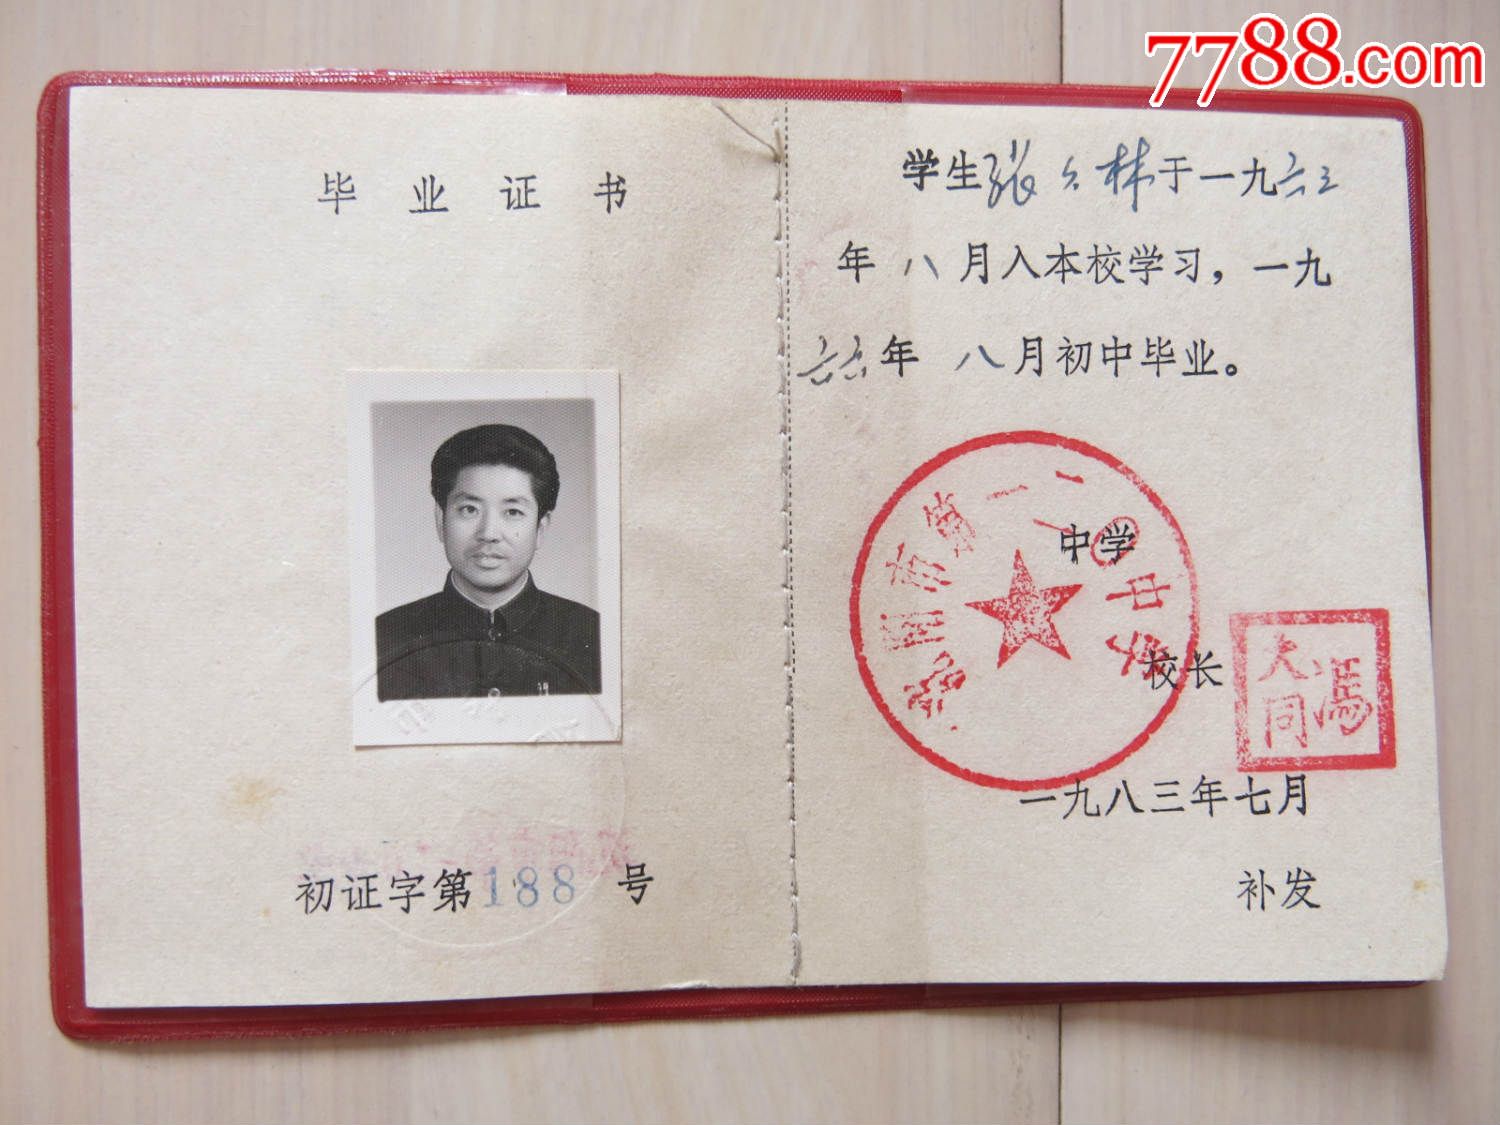 7788.com
毕业证书
初证字第188号
学生张久林于一九六三
年八月入本校学习，一九
六六年八月初中毕业。
中学
校长
大同
冯
一九八三年七月
补发